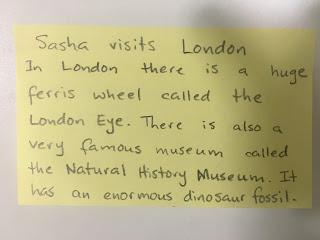 Sasha visits London
In London there is a huge
ferris wheel called the
London Eye. There is also a
very famous museum called
the Natural History Museum. It
has an enormous dinosaur fossil.